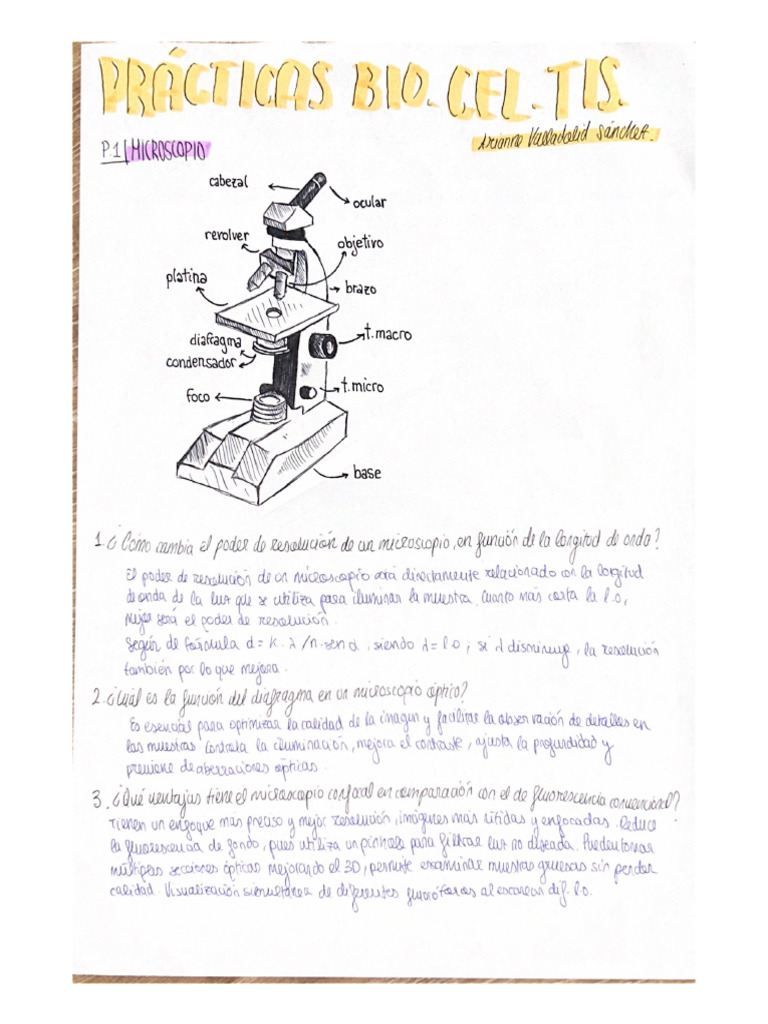 PRÁCTICAS BIO. CEL. TIS.
Arianne Valladolid Sánchez.
P.1 | MICROSCOPIO
cabezal
ocular
revolver
objetivo
platina
brazo
diafragma
t.macro
condensador
foco
t.micro
base
1. ¿Cómo cambia el poder de resolución de un microscopio, en función de la longitud de onda?
El poder de resolución de un microscopio está directamente relacionado con la longitud
de onda de la luz que se utiliza para iluminar la muestra. Cuanto más corta la l.o,
mejor será el poder de resolución.
Según de fórmula d = k · λ / n · sen α , siendo λ = l.o ; si λ disminuye, la resolución
también por lo que mejora.
2. ¿Cuál es la función del diafragma en un microscopio óptico?
Es esencial para optimizar la calidad de la imagen y facilitar la observación de detalles en
las muestras. Controla la iluminación, mejora el contraste, ajusta la profundidad y
previene de aberraciones ópticas.
3. ¿Qué ventajas tiene el microscopio confocal en comparación con el de fluorescencia convencional?
Tienen un enfoque más preciso y mejor resolución, imágenes más nítidas y enfocadas. Reduce
la fluorescencia de fondo, pues utiliza un pinhole para filtrar luz no deseada. Pueden tomar
múltiples secciones ópticas mejorando el 3D, permite examinar muestras gruesas sin perder
calidad. Visualización simultánea de diferentes fluoróforos al escanear dif. l.o.